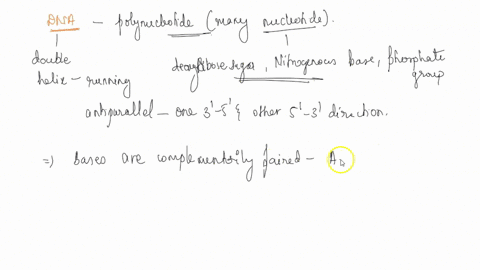 DNA - polynucleotide (many nucleotide).
double
helix - running
deoxyribose sugar, Nitrogenous base, phosphate group
antiparallel - one 3'-5' & other 5'-3' direction.
=) Bases are complementarily paired - A